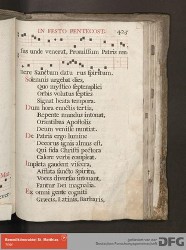 IN FESTO PENTECOST.
sus unde venerat, Promissum Patris mu
nere Sanctum datu rus spiritum.
Solemnis urgebat dies,
Quo mystico septemplici
Orbis volutus septies
Signat beata tempora.
Dum hora cunctis tertia
Repente mundus intonat,
Orantibus Apostolis
Deum venisse nuntiat.
De Patris ergo lumine
Decorus ignis almus est,
Qui fida Christi pectora
Calore verbi compleat.
Impleta gaudent viscera,
Afflata Sancto Spiritu,
Voces diversas intonant,
Fantur Dei magnalia.
Ex omni gente cogniti
Graecis, Latinis, Barbaris,
Benediktinerabtei St. Matthias
DFG